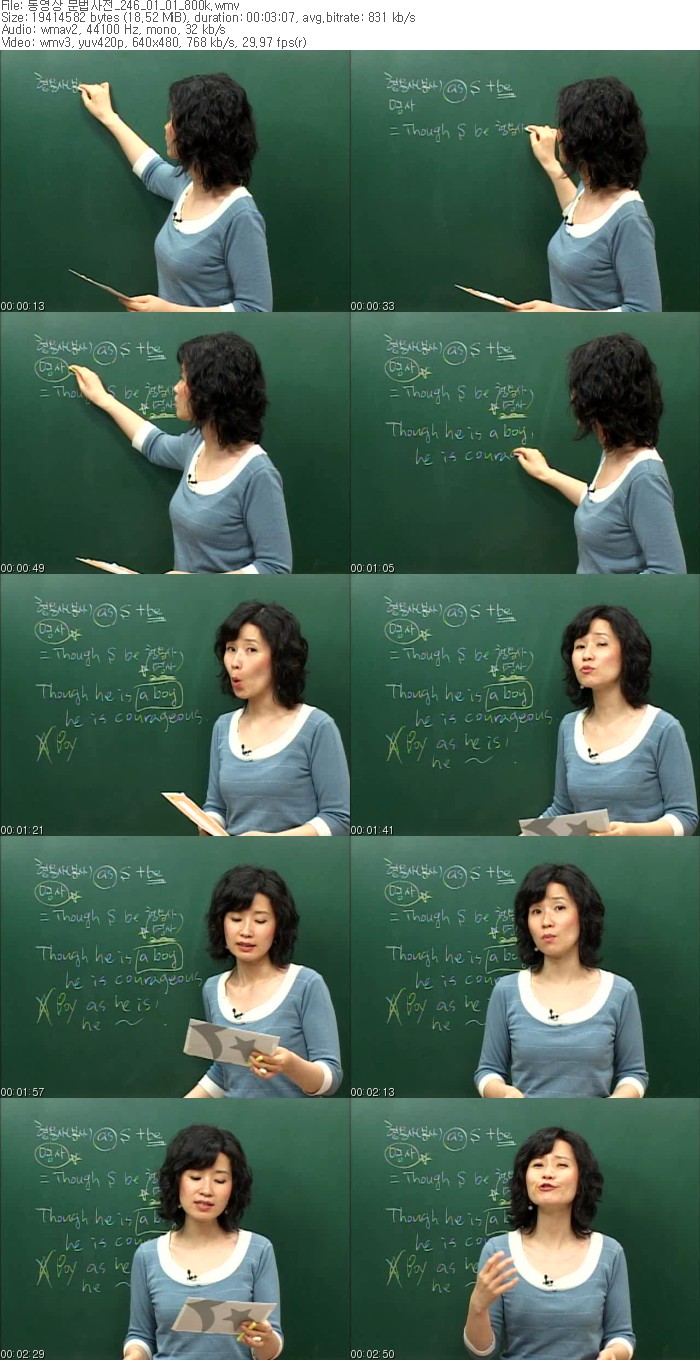 File: 동영상 문법사전_246_01_01_800k.wmv
Size: 19414582 bytes (18,52 MiB), duration: 00:03:07, avg.bitrate: 831 kb/s
Audio: wmav2, 44100 Hz, mono, 32 kb/s
Video: wmv3, yuv420p, 640x480, 768 kb/s, 29,97 fps(r)
00:00:13
as S + be
명사
= Though S be 형용사
00:00:33
as S + be
명사
= Though S be 형용사
명사
00:00:49
as S + be
명사
= Though S be 형용사
명사
Though he is a boy,
he is courag
00:01:05
as S + be
명사
= Though S be 형용사
명사
Though he is a boy
he is courageous.
Boy
00:01:21
as S + be
명사
= Though S be 형용사
명사
Though he is a boy
he is courageous.
Boy as he is,
he ~
00:01:41
as S + be
명사
= Though S be 형용사
명사
Though he is a boy
he is courageous
Boy as he is,
he ~
00:01:57
as S + be
명사
= Though S be
Though he is a boy
he is cou
Boy as he is
he ~
00:02:13
as S + be
명사
= Though S be
Though he is a b
he is co
Boy as he
he ~
00:02:29
as S + be
명사
= Though S be
Though he is a
he is co
Boy as he
he ~
00:02:50